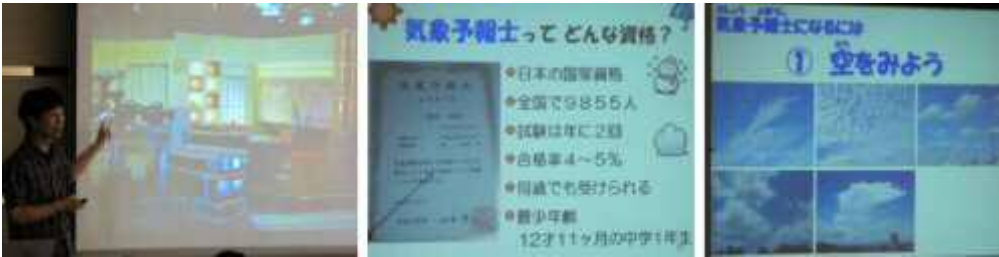 気象予報士って どんな資格？
●日本の国家資格
●全国で９８５５人
●試験は年に２回
●合格率４～５％
●何歳でも受けられる
●最少年齢
12才11ヶ月の中学1年生
気象予報士になるには
① 空をみよう